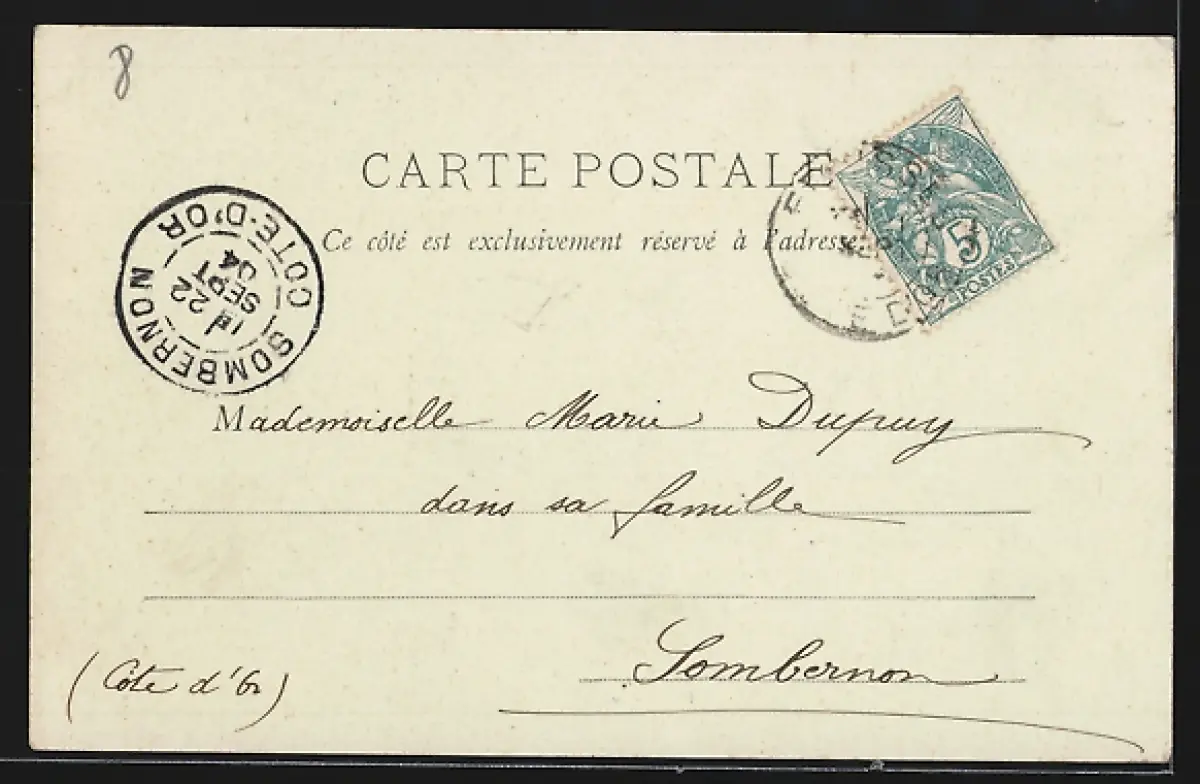 8
CARTE POSTALE
Ce côté est exclusivement réservé à l'adresse.
5
POSTES
SOMBERNON
COTE-D'OR
22
SEPT
04
Mademoiselle Marie Dupuy
dans sa famille
Sombernon
(Côte d'Or)